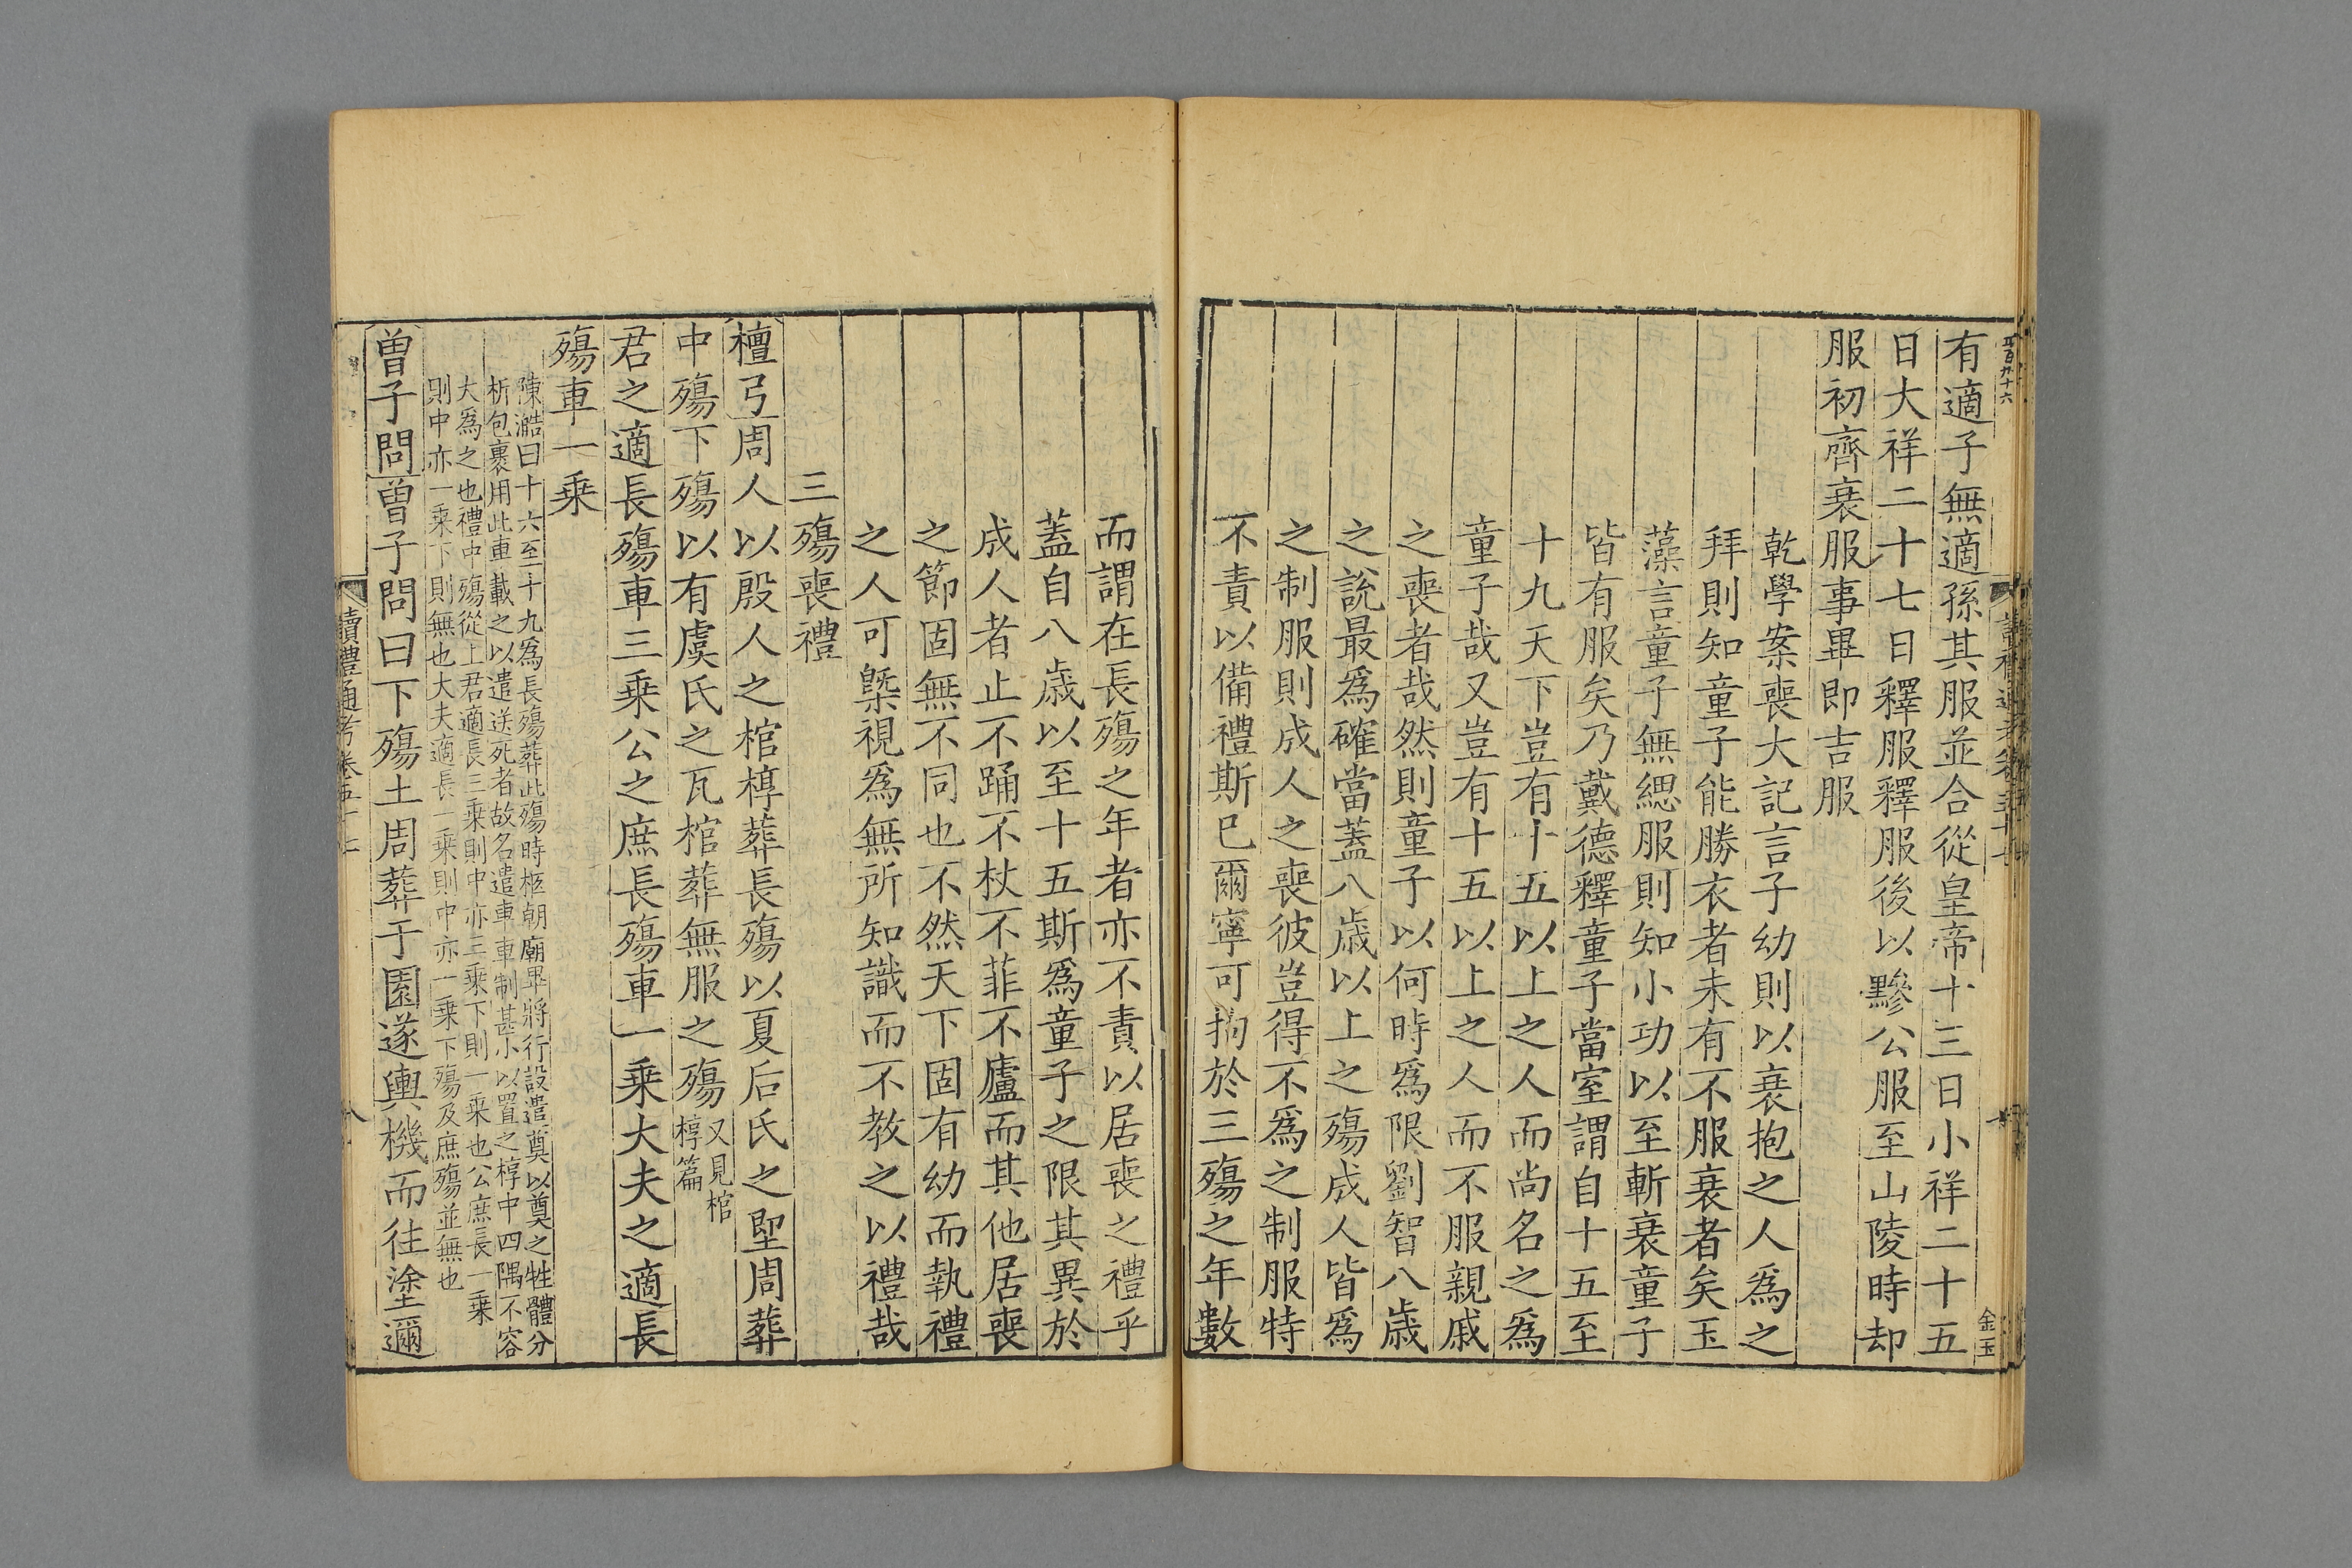 有適子無適孫其服並合從皇帝十三日小祥二十五
日大祥二十七日釋服釋服後以黲公服至山陵時却
服初齊衰服事畢即吉服
乾學案喪大記言子幼則以衰抱之人爲之
拜則知童子能勝衣者未有不服衰者矣玉
藻言童子無緦服則知小功以至斬衰童子
皆有服矣乃戴德釋童子當室謂自十五至
十九天下豈有十五以上之人而尚名之爲
童子哉又豈有十五以上之人而不服親戚
之喪者哉然則童子以何時爲限劉智八歳
之說最爲確當蓋八歳以上之殤成人皆爲
之制服則成人之喪彼豈得不爲之制服特
不責以備禮斯已爾寧可拘於三殤之年數
金玉
而謂在長殤之年者亦不責以居喪之禮乎
蓋自八歳以至十五斯爲童子之限其異於
成人者止不踊不杖不菲不廬而其他居喪
之節固無不同也不然天下固有幼而執禮
之人可槩視爲無所知識而不教之以禮哉
三殤喪禮
檀弓周人以殷人之棺椁葬長殤以夏后氏之堲周葬
中殤下殤以有虞氏之瓦棺葬無服之殤又見棺椁篇
君之適長殤車三乘公之庶長殤車一乘大夫之適長
殤車一乘
陳澔曰十六至十九爲長殤葬此殤時柩朝廟畢將行設遣奠以奠之牲體分
析包裹用此車載之以遣送死者故名遣車車制甚小以置之椁中四隅不容
大爲之也禮中殤從上君適長三乘則中亦三乘下則一乘也公庶長一乘
則中亦一乘下則無也大夫適長一乘則中亦一乘下殤及庶殤並無也
曾子問曾子問曰下殤土周葬于園遂輿機而往塗邇
讀禮通考卷五十七
八